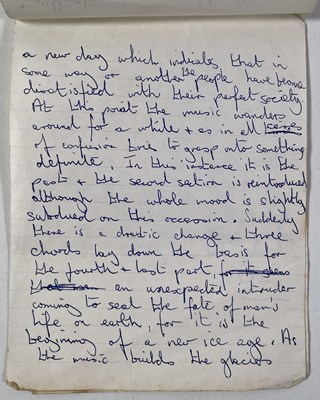 a new day which indicates that in
some way or another the people have become
disatisfied with their perfect society.
At this point the music wanders
around for a while & as in all cases
of confusion tries to grasp onto something
definite. In this instance it is the
past & the second section is reintroduced
although the whole mood is slightly
subdued on this occassion. Suddenly
there is a drastic change & three
chords lay down the basis for
the fourth & last part, for it shows
an unexpected intruder
coming to seal the fate of man's
life on earth, for it is the
beginning of a new ice age. As
the music builds the glaciers